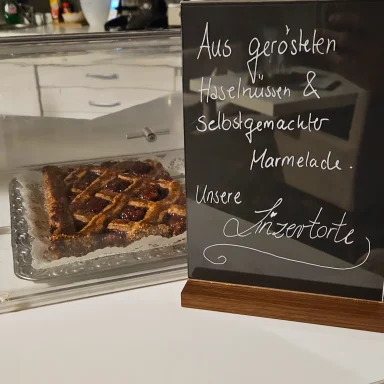 Aus gerösteten
Haselnüssen &
selbstgemachter
Marmelade.
Unsere
Linzertorte